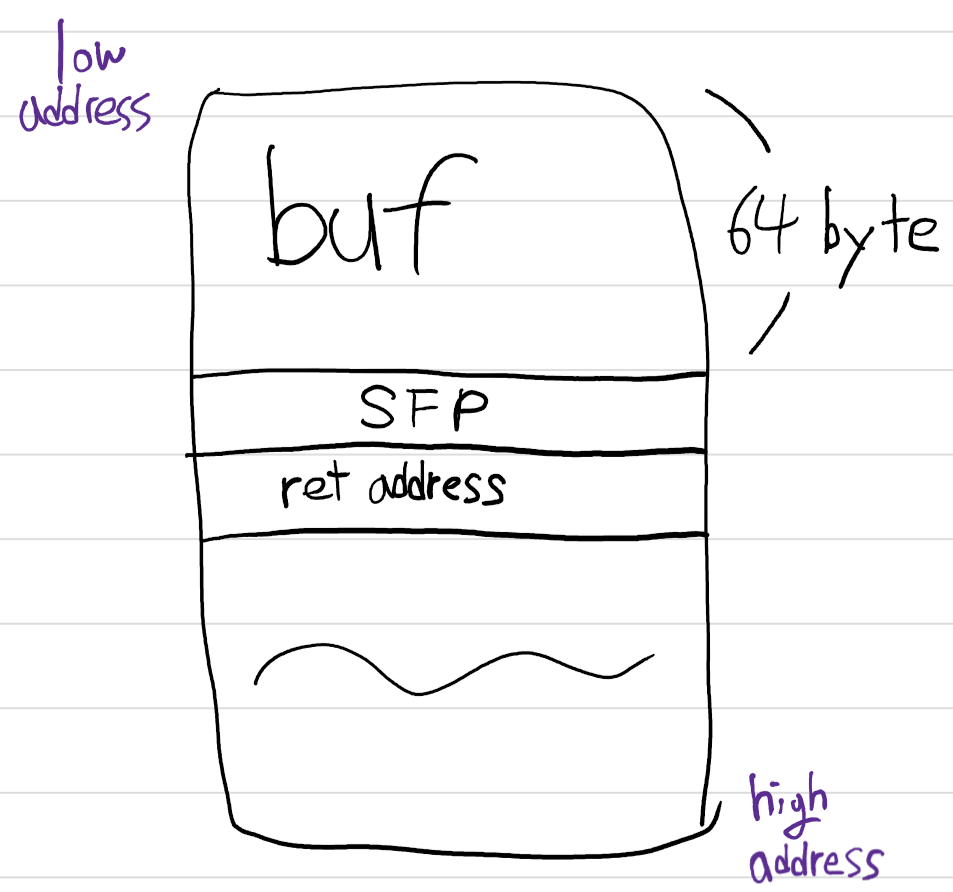 low
address
buf
64 byte
SFP
ret address
high
address